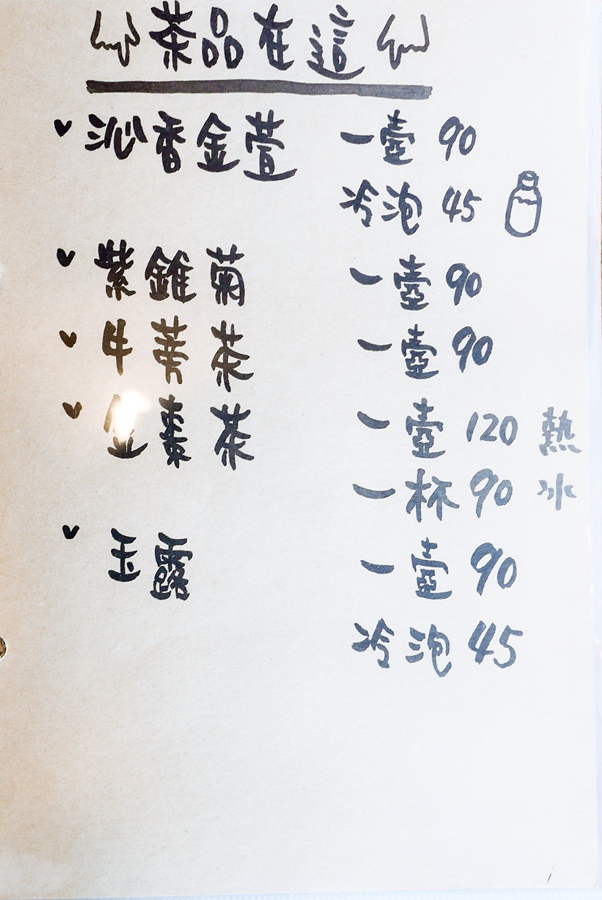 茶品在這
沁香金萱 一壺 90
冷泡 45
紫錐菊 一壺 90
牛蒡茶 一壺 90
金棗茶 一壺 120 熱
一杯 90 冰
玉露 一壺 90
冷泡 45